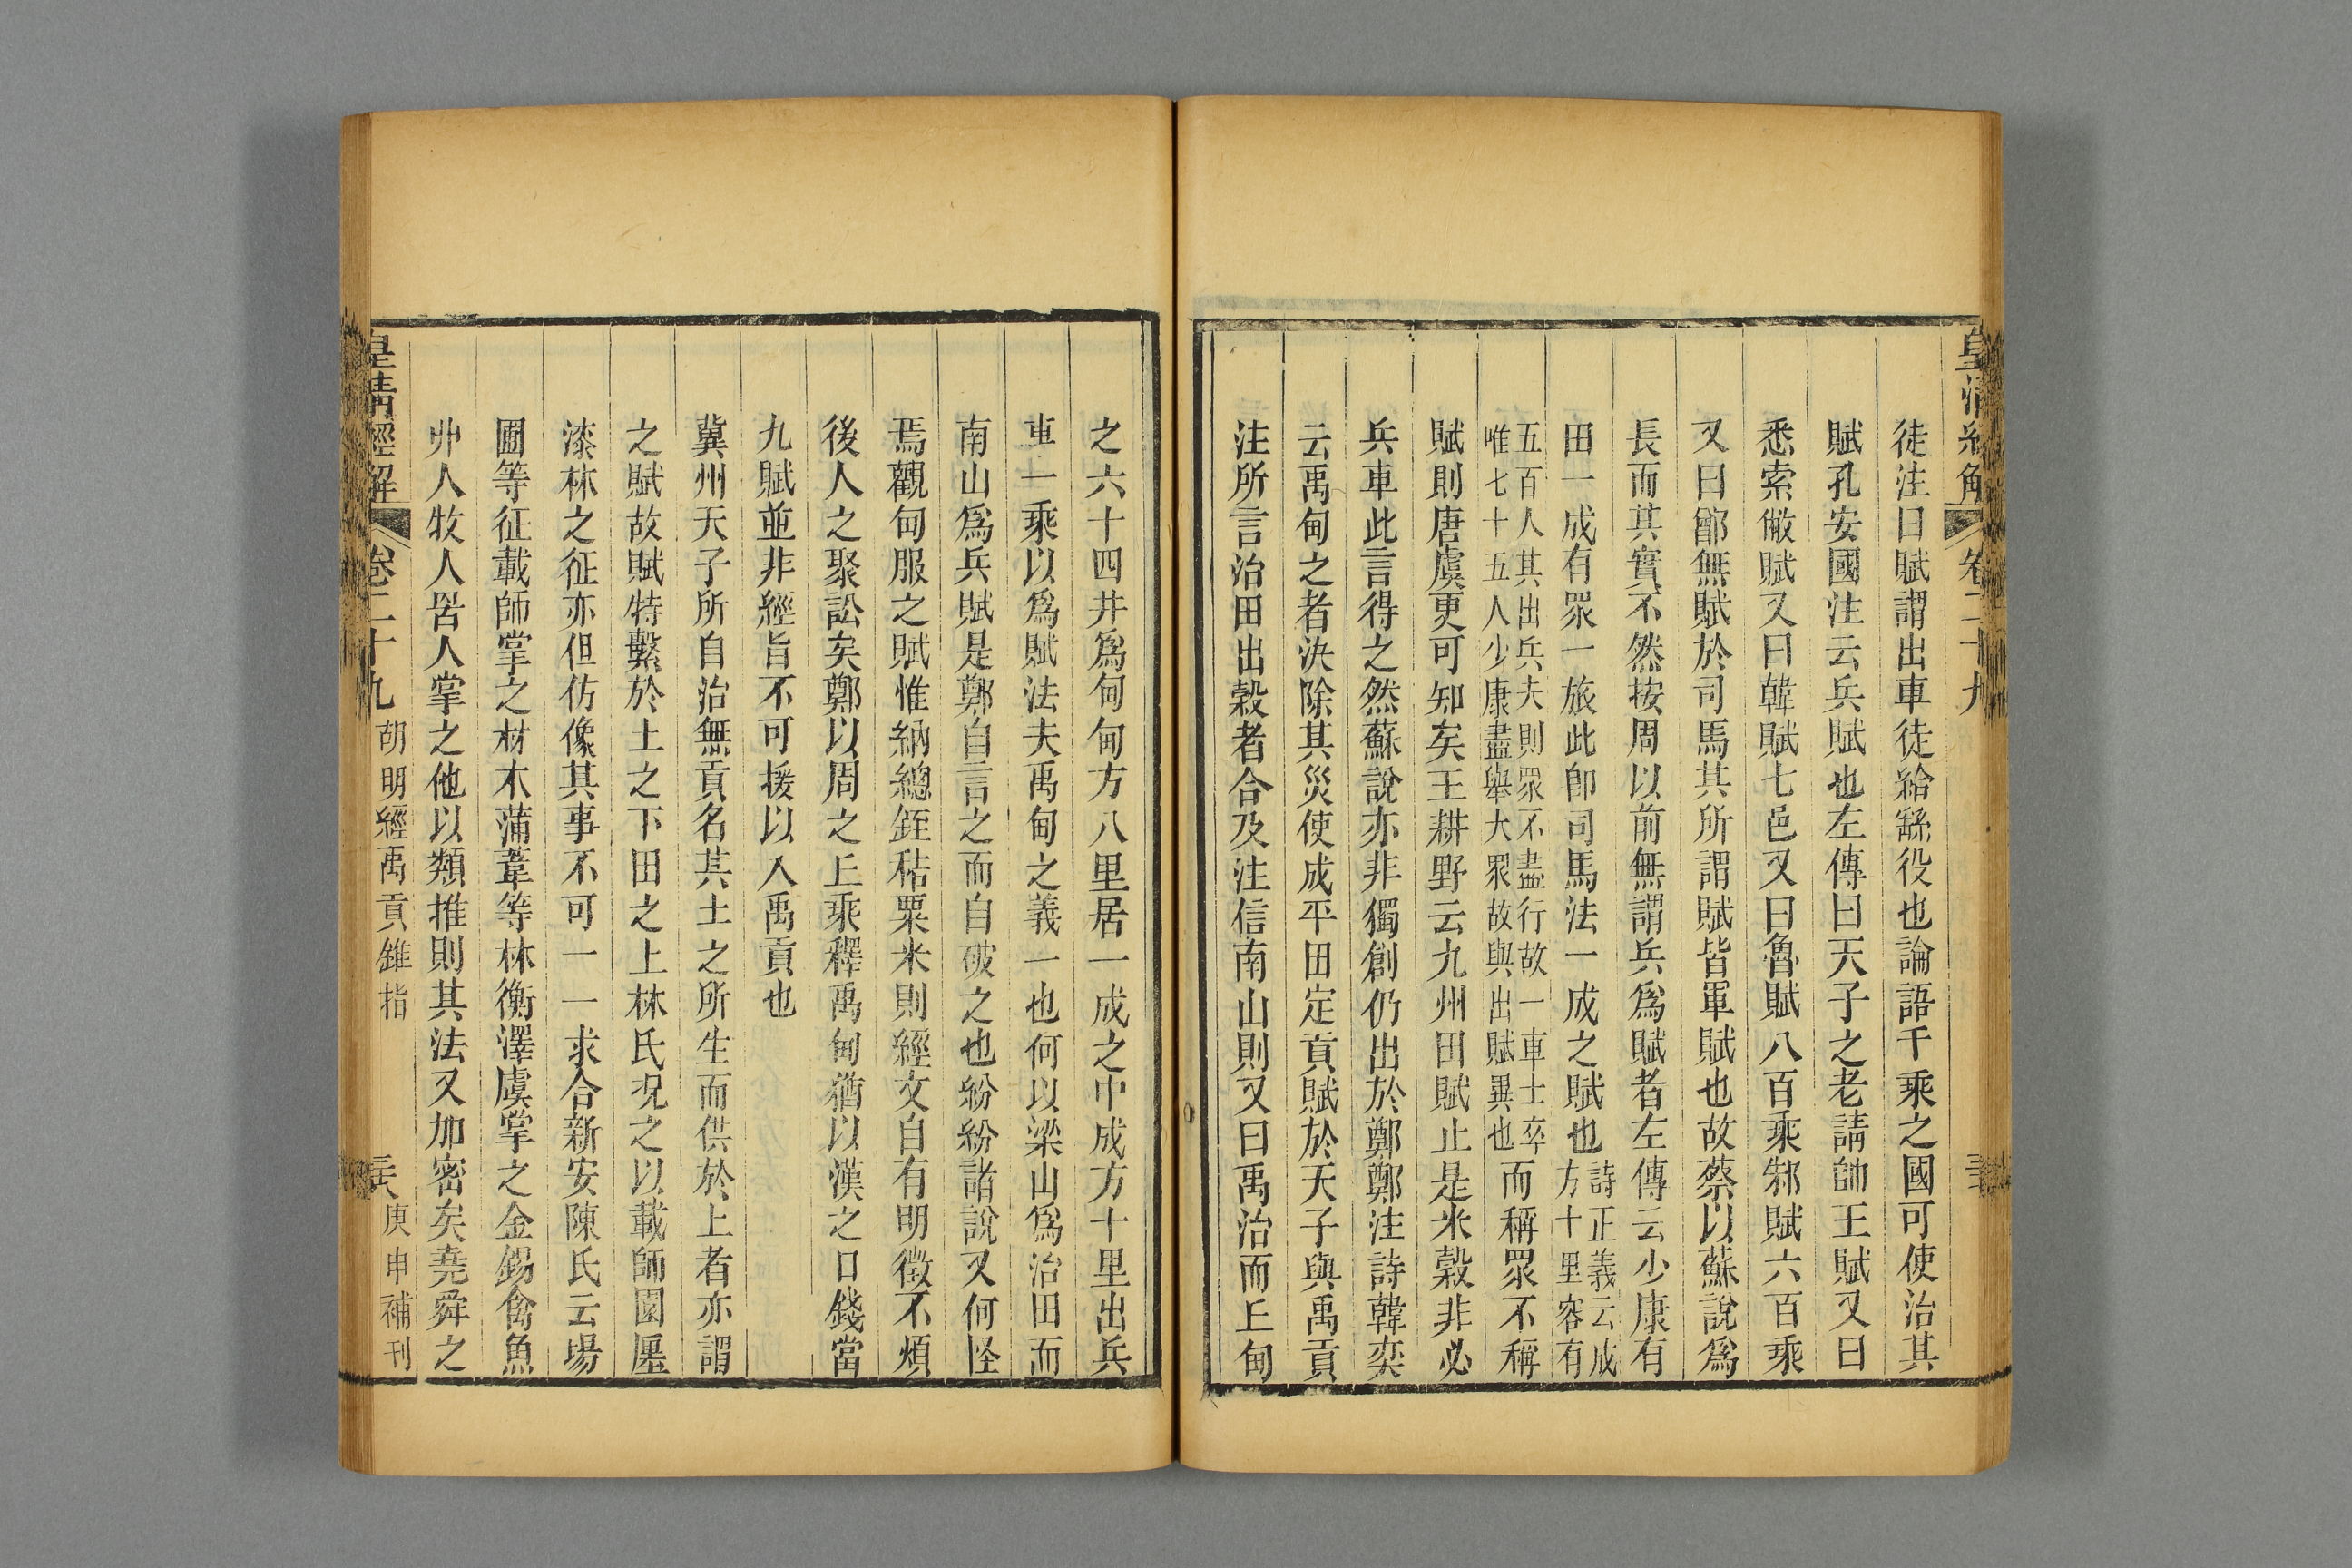 皇清經解 卷二十九
徒注曰賦謂出車徒給繇役也論語千乘之國可使治其
賦孔安國注云兵賦也左傳曰天子之老請帥王賦又曰
悉索敝賦又曰韓賦七邑又曰魯賦八百乘邾賦六百乘
又曰鄫無賦於司馬其所謂賦皆軍賦也故蔡以蘇說爲
長而其實不然按周以前無謂兵爲賦者左傳云少康有
田一成有眾一旅此卽司馬法一成之賦也詩正義云成方十里容有
五百人其出兵夫則眾不盡行故一車士卒唯七十五人少康盡舉大眾故與出賦異也而稱眾不稱
賦則唐虞更可知矣王耕野云九州田賦止是米穀非必
兵車此言得之然蘇說亦非獨創仍出於鄭鄭注詩韓奕
云禹甸之者決除其災使成平田定貢賦於天子與禹貢
注所言治田出穀者合及注信南山則又曰禹治而丘甸
之六十四井爲甸甸方八里居一成之中成方十里出兵
車一乘以爲賦法夫禹甸之義一也何以梁山爲治田而
南山爲兵賦是鄭自言之而自破之也紛紛諸說又何怪
焉觀甸服之賦惟納總銍秸粟米則經文自有明徵不煩
後人之聚訟矣鄭以周之丘乘釋禹甸猶以漢之口錢當
九賦並非經旨不可援以入禹貢也
冀州天子所自治無貢名其土之所生而供於上者亦謂
之賦故賦特繫於土之下田之上林氏況之以載師園廛
漆林之征亦但仿像其事不可一一求合新安陳氏云場
圃等征載師掌之材木蒲葦等林衡澤虞掌之金錫禽魚
丱人牧人罟人掌之他以類推則其法又加密矣堯舜之
皇清經解 卷二十九 胡明經禹貢錐指 庚申補刊